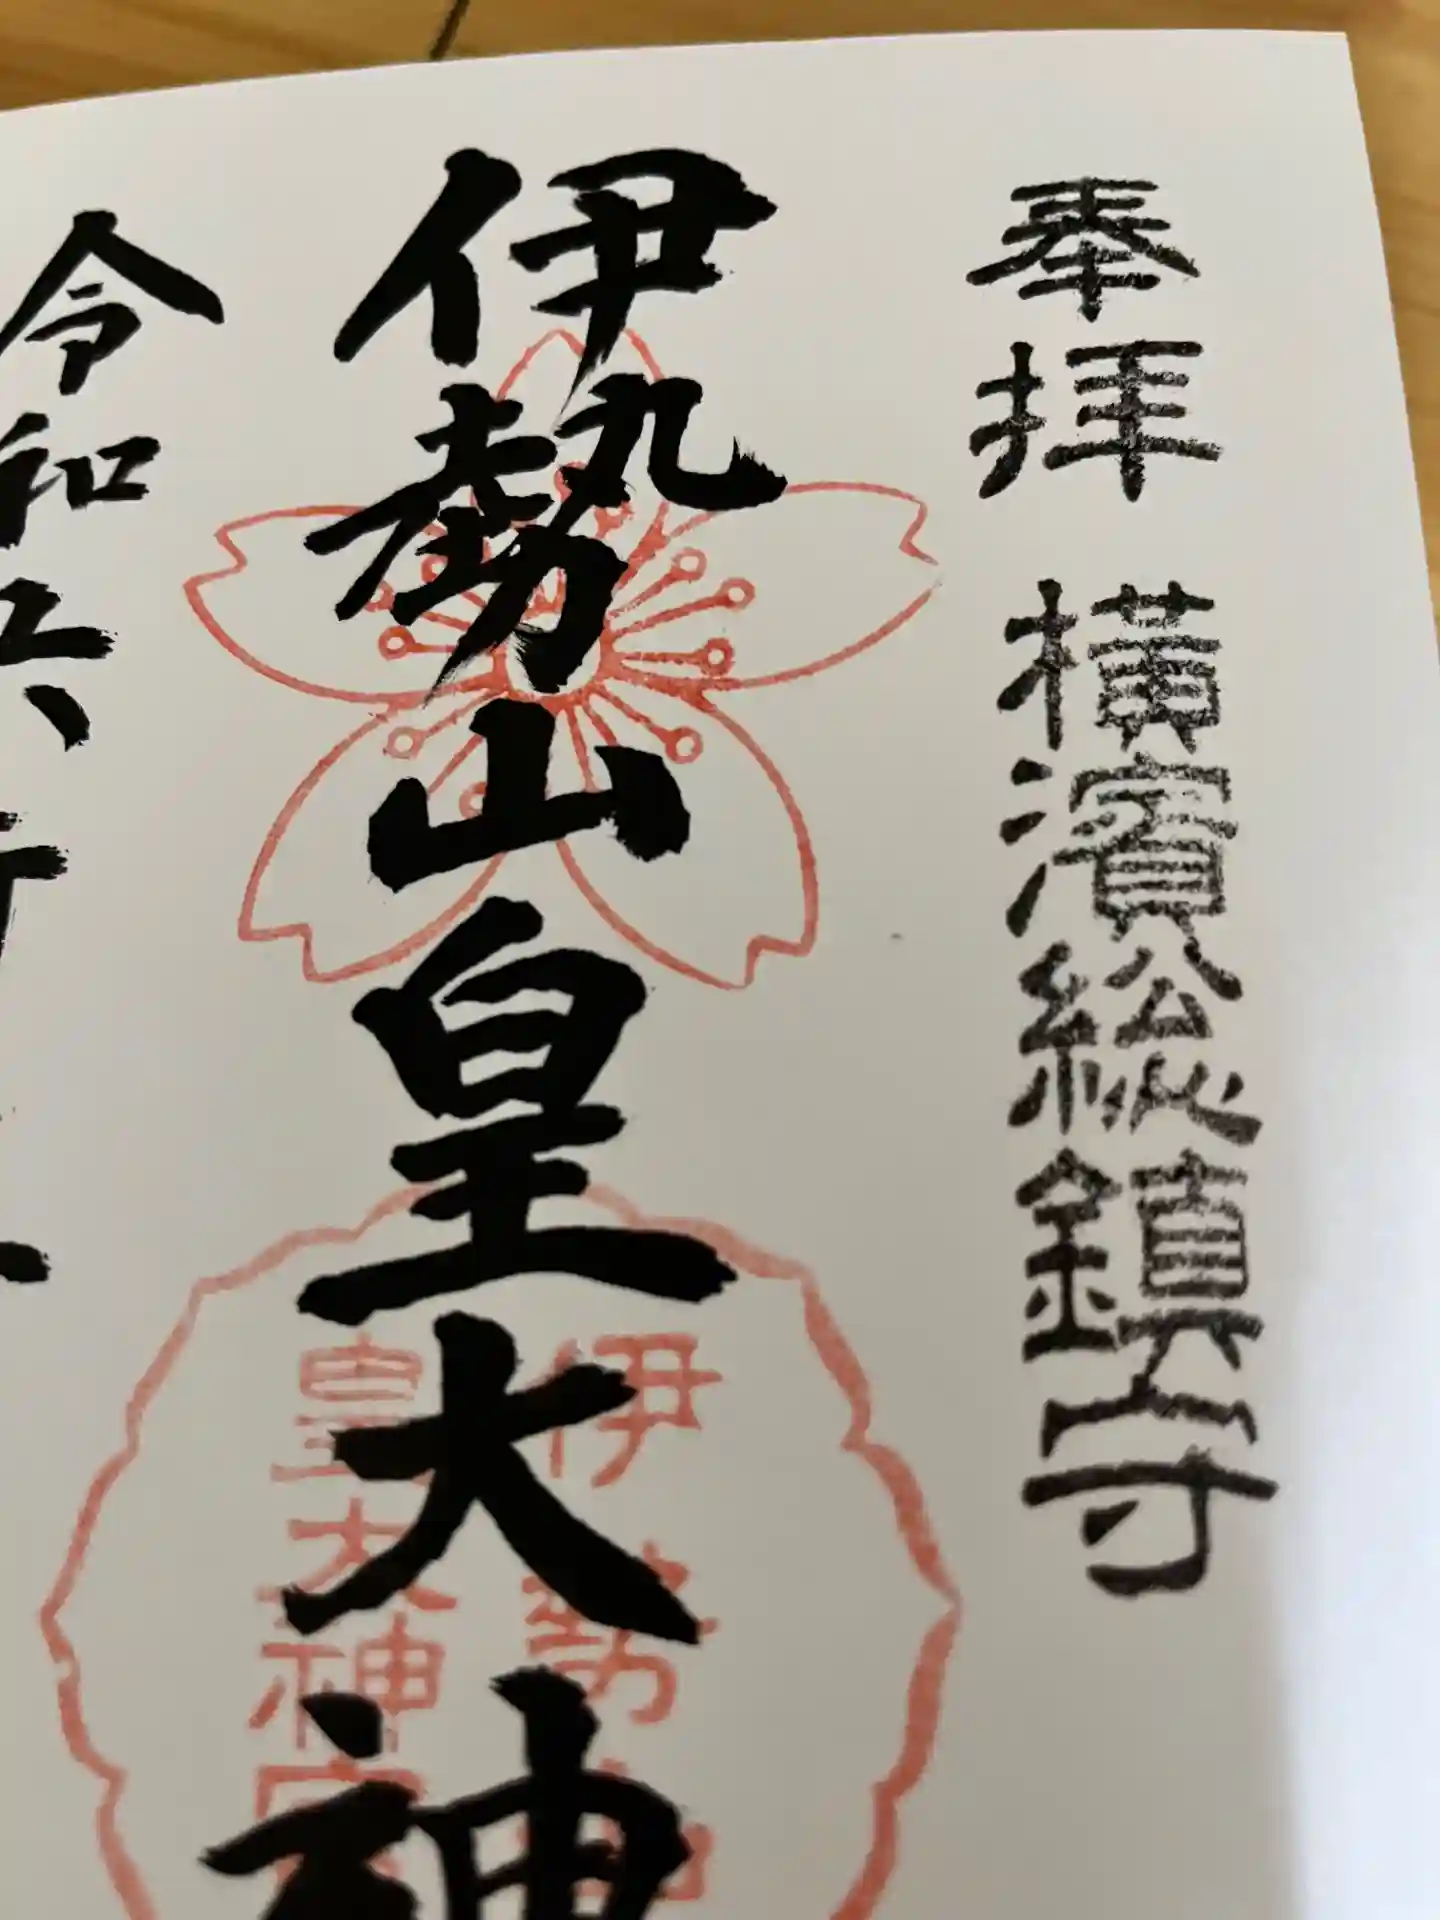 奉拝 横濱総鎮守
伊勢山皇大神
伊勢山
皇大神宮
令和六年